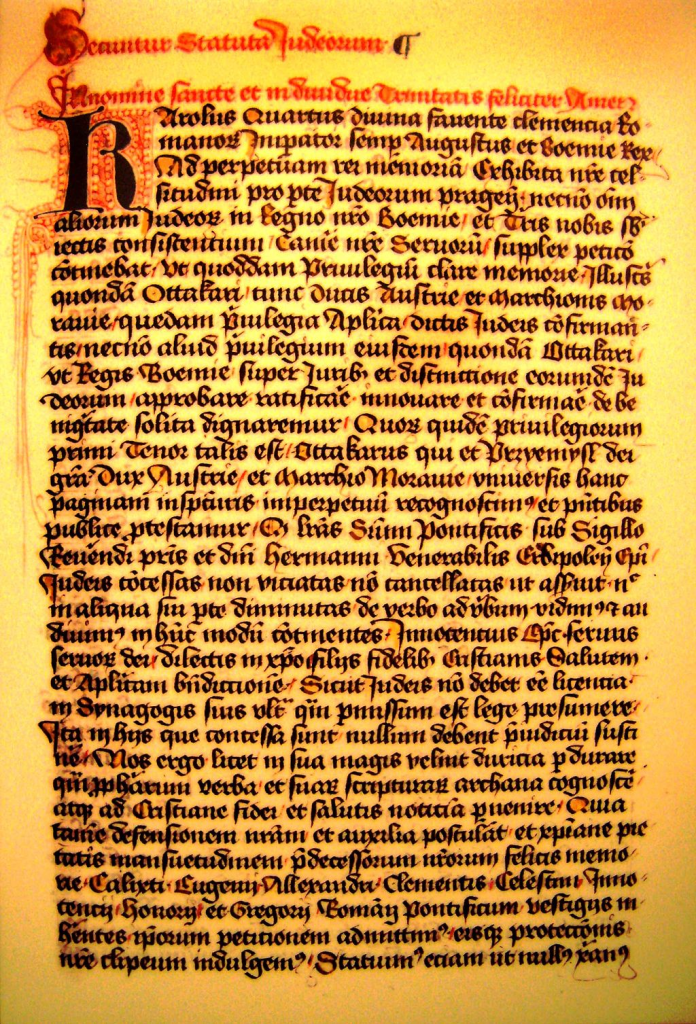 Secuntur Statuta Judeorum ¶
In nomine sancte et individue Trinitatis feliciter Amen
Karolus Quartus divina favente clemencia Ro-
manoꝝ Impator semp Augustus et Boemie Rex
Ad perpetuam rei memoriā Exhibita nr̄e cel-
situdini pro pte Judeorum pragen̄ necnō om̄
aliorum Judeoꝝ in Regno nr̄o Boemie et Tr̄is nobis sb-
iectis consistentium Cam̄e nr̄e Servorū supplex peticō
cōtinebat Vt quoddam Privilegiū clare memorie Illustꝰ
quondā Ottakari tunc Ducis Austrie et Marchionis Mo-
ravie quedam p̄vilegia Aplica dictis Judeis cōfirman-
tis necnō aliud p̄vilegium eiusdem quondā Ottakari
vt Regis Boemie super Jurib et distinctione eorumdē Ju
deorum approbare ratificāē innovare et cōfirmāē de be
nigtate solita dignaremur Quoꝝ quidē privilegiorum
primi Tenor talis est Ottakarus qui et Przyemysl dei
grā Dux Austrie et Marchio Moravie vniversis hanc
paginam insp̄cturis imperpetuū recognoscimꝰ et pn̄tibus
publice ptestamur Q lr̄as Sūmi Pontificis sub Sigillo
Reuēndi pr̄is et dn̄i Hermanni Venerabilis Erbipolen̄ Ep̄i
Judeis cōcessas non viciatas nō cancellatas ut assuit nc̄
in aliqua sui pte diminutas de verbo ad v̄bum vidimꝰ et au
diuimꝰ in hūc modū cōtinentes Innocentius Ep̄c servus
servoꝝ dei dilectis in xp̄o filijs fidelib Cristianis Salutem
et Aplicam bn̄dictionē Sicut Judeis nō debet ēe licentia
in Synagogis suis vlt qm̄ pmissum est lege presumere
Ita in hijs que concessa sunt nullum debent p̄iudiciū susti
nē Nos ergo licet in sua magis velint duricia pdurare
qm̄ pphārum verba et suaꝝ scripturaꝝ archana cognoscē
atqꝫ ad Cristiane fidei et salutis noticiā pvenire Quia
tamē defensionem nrām et auxilia postulāt et xp̄iane pie
tatis mansuetudinem p̄decessorum nr̄orum felicis memo-
rie Calixti Eugenij Allexandri Clementis Celestini Inno-
tencij Honorij et Gregorij Romān̄ Pontificum vestigijs in-
hentes ip̄orum petitionem admittimꝰ eisqꝫ proteccionis
nr̄e clipeum indulgemꝰ Statuimꝰ etiam ut nullꝰ xānꝰ